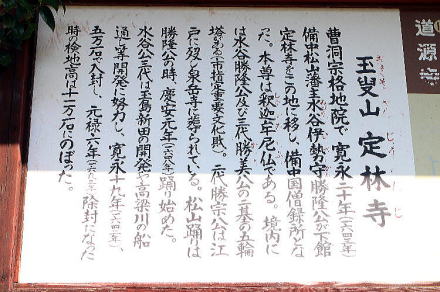 道源
玉叟山 定林寺
ぎょくそうざん じょうりんじ
曹洞宗格地院で寛永二十年(一六四三年)
備中松山藩主水谷伊勢守勝隆公が下館
定林寺をこの地に移し、備中国僧録所とな
った。本尊は釈迦牟尼仏である。境内に
は水谷勝隆公及び二代勝美公の二基の五輪
塔がある(市指定重要文化財)。二代勝宗公は江
戸に没し泉岳寺に葬られている。松山踊は
勝隆公の時、慶安元年(一六四八年)踊り始めた。
水谷公三代は玉島新田の開発や高梁川の船
通し等開発に努力し、寛永十九年(一六四二年)、
五万石で入封し、元禄六年(一六九三年)除封になった
時の検地高は十一万石にのぼった。